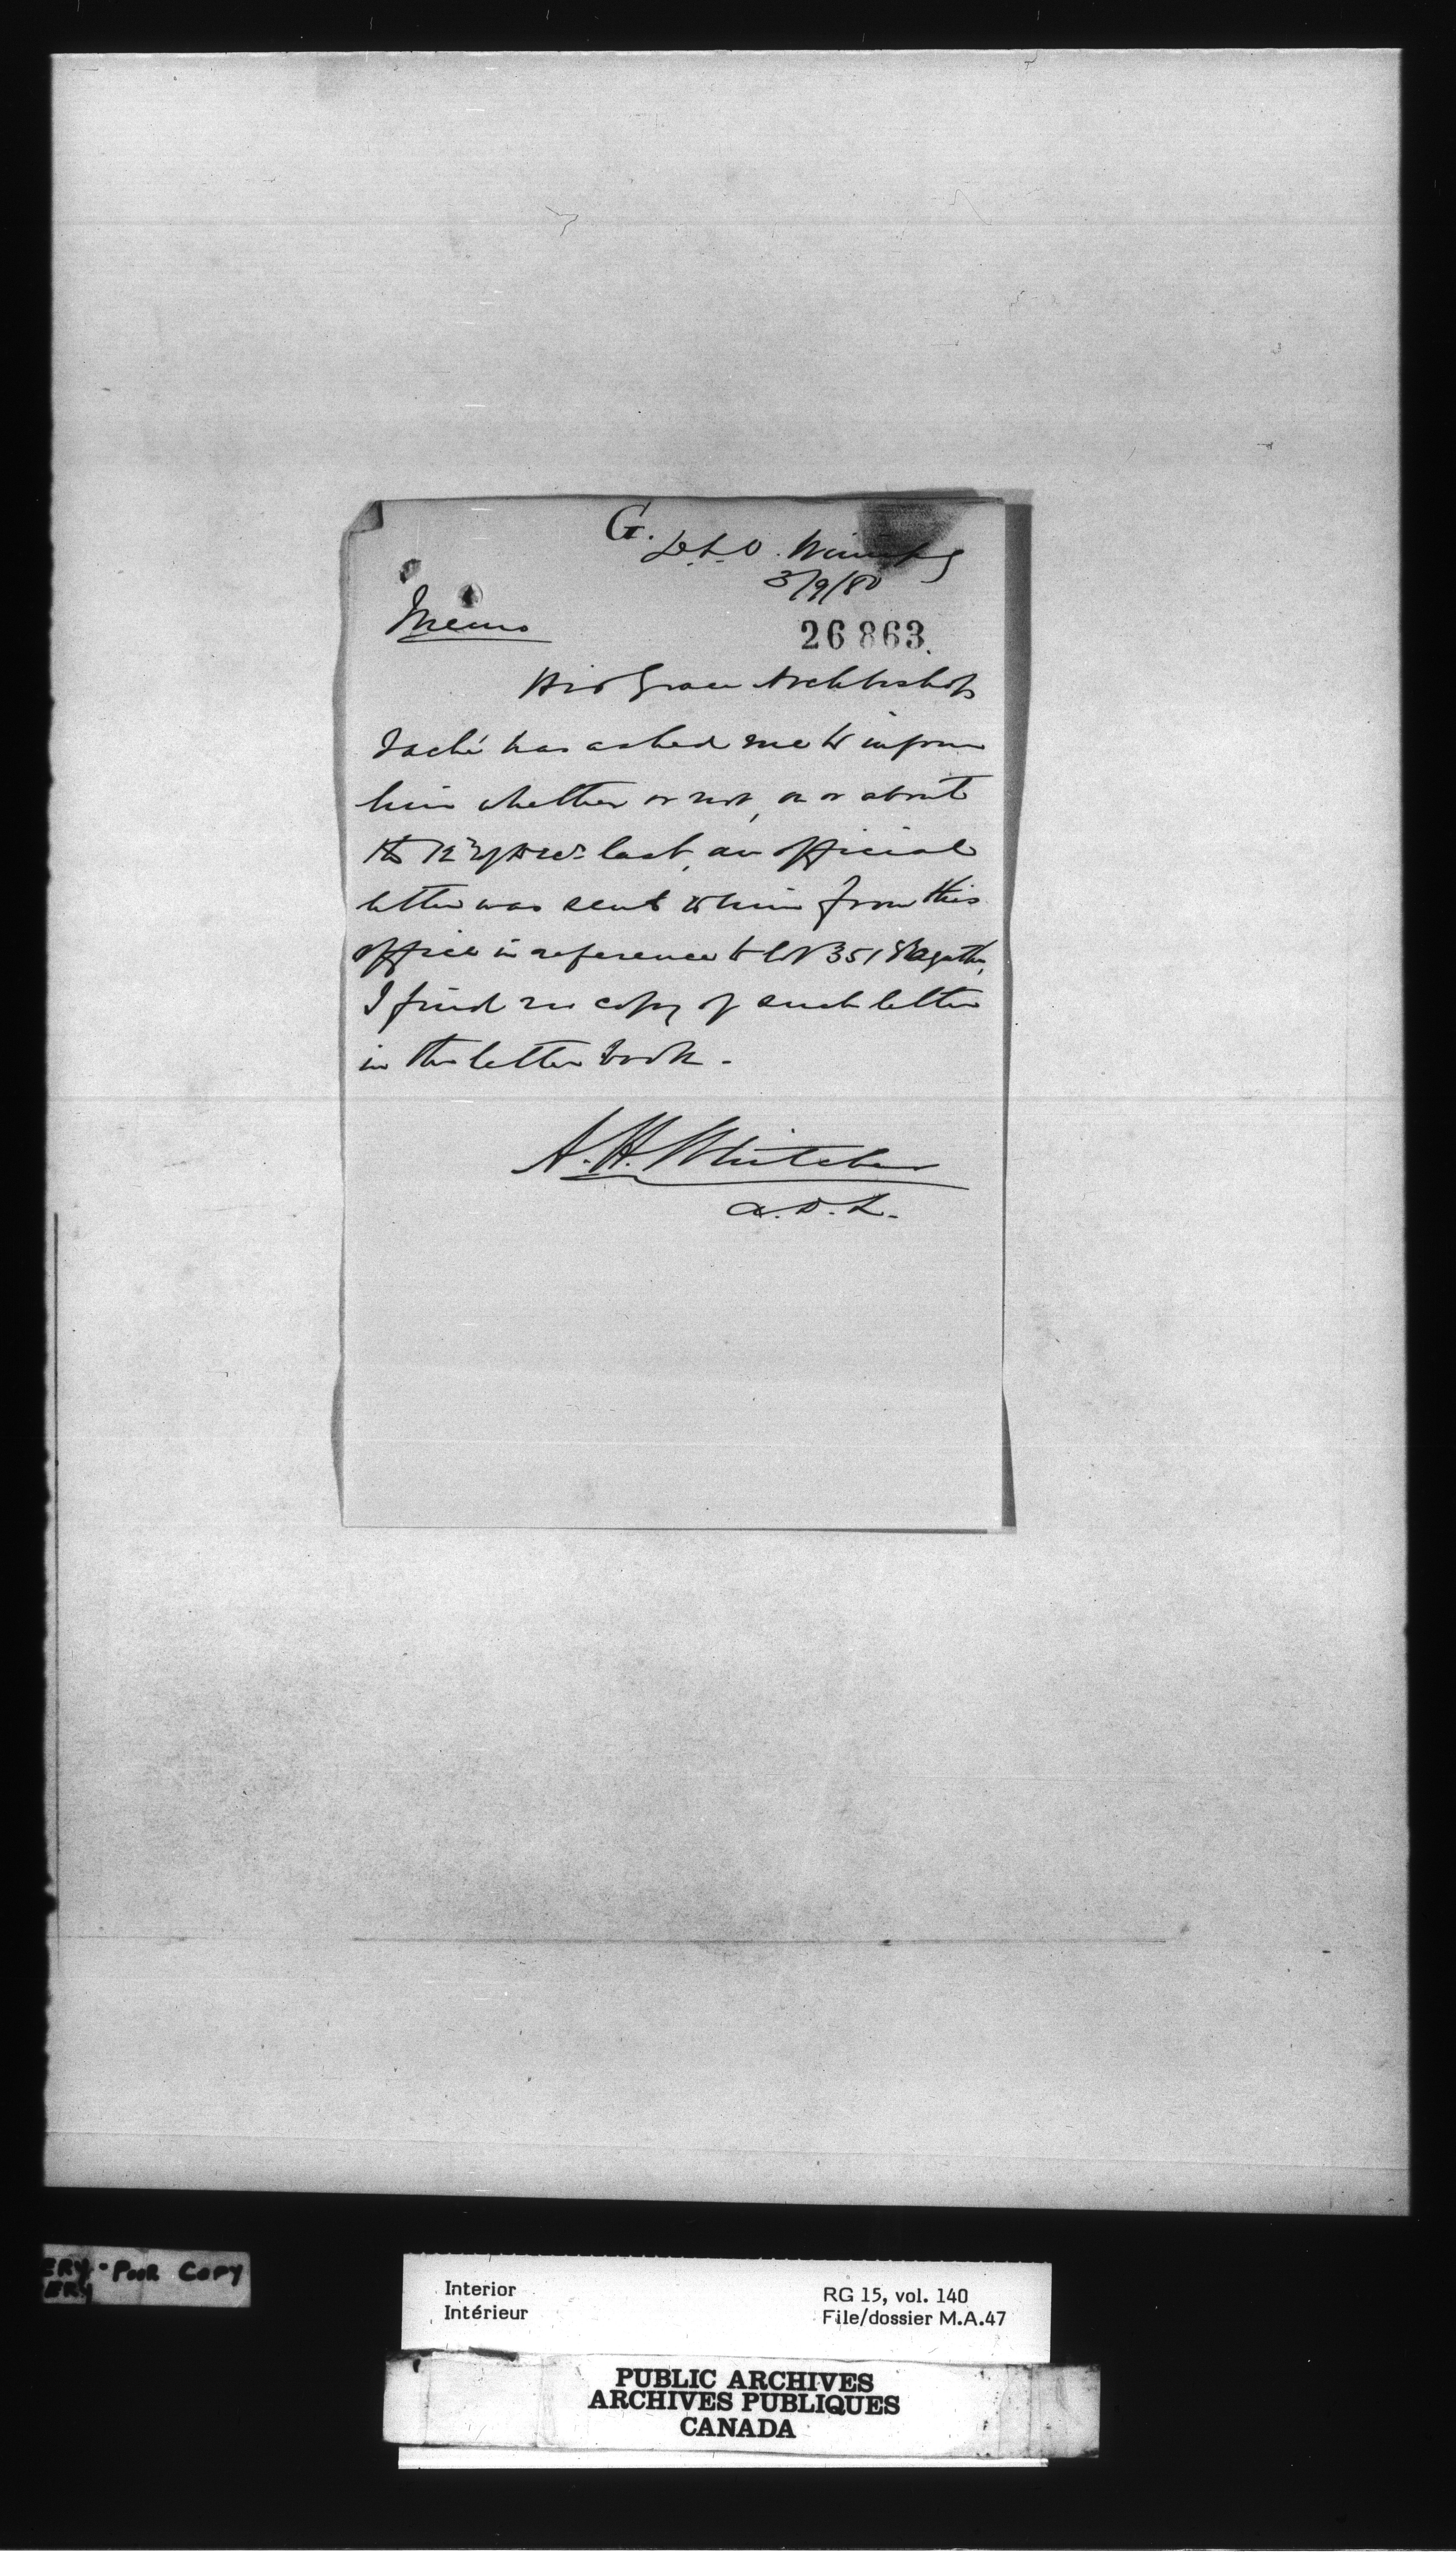 G.
D.L.O. Winnipeg
3/9/80
Memo
26863.
His Grace Archbishop
Taché has asked me to inform
him whether or not, on or about
the 12 of last, an official
letter was sent to him from this
office in reference to lot 351 St Agathe,
I find no copy of such letter
in the letter book.
A. H. Whitcher
A. D. L.
ERY - POOR COPY
ERY
Interior
Intérieur
RG 15, vol. 140
File/dossier M.A.47
PUBLIC ARCHIVES
ARCHIVES PUBLIQUES
CANADA